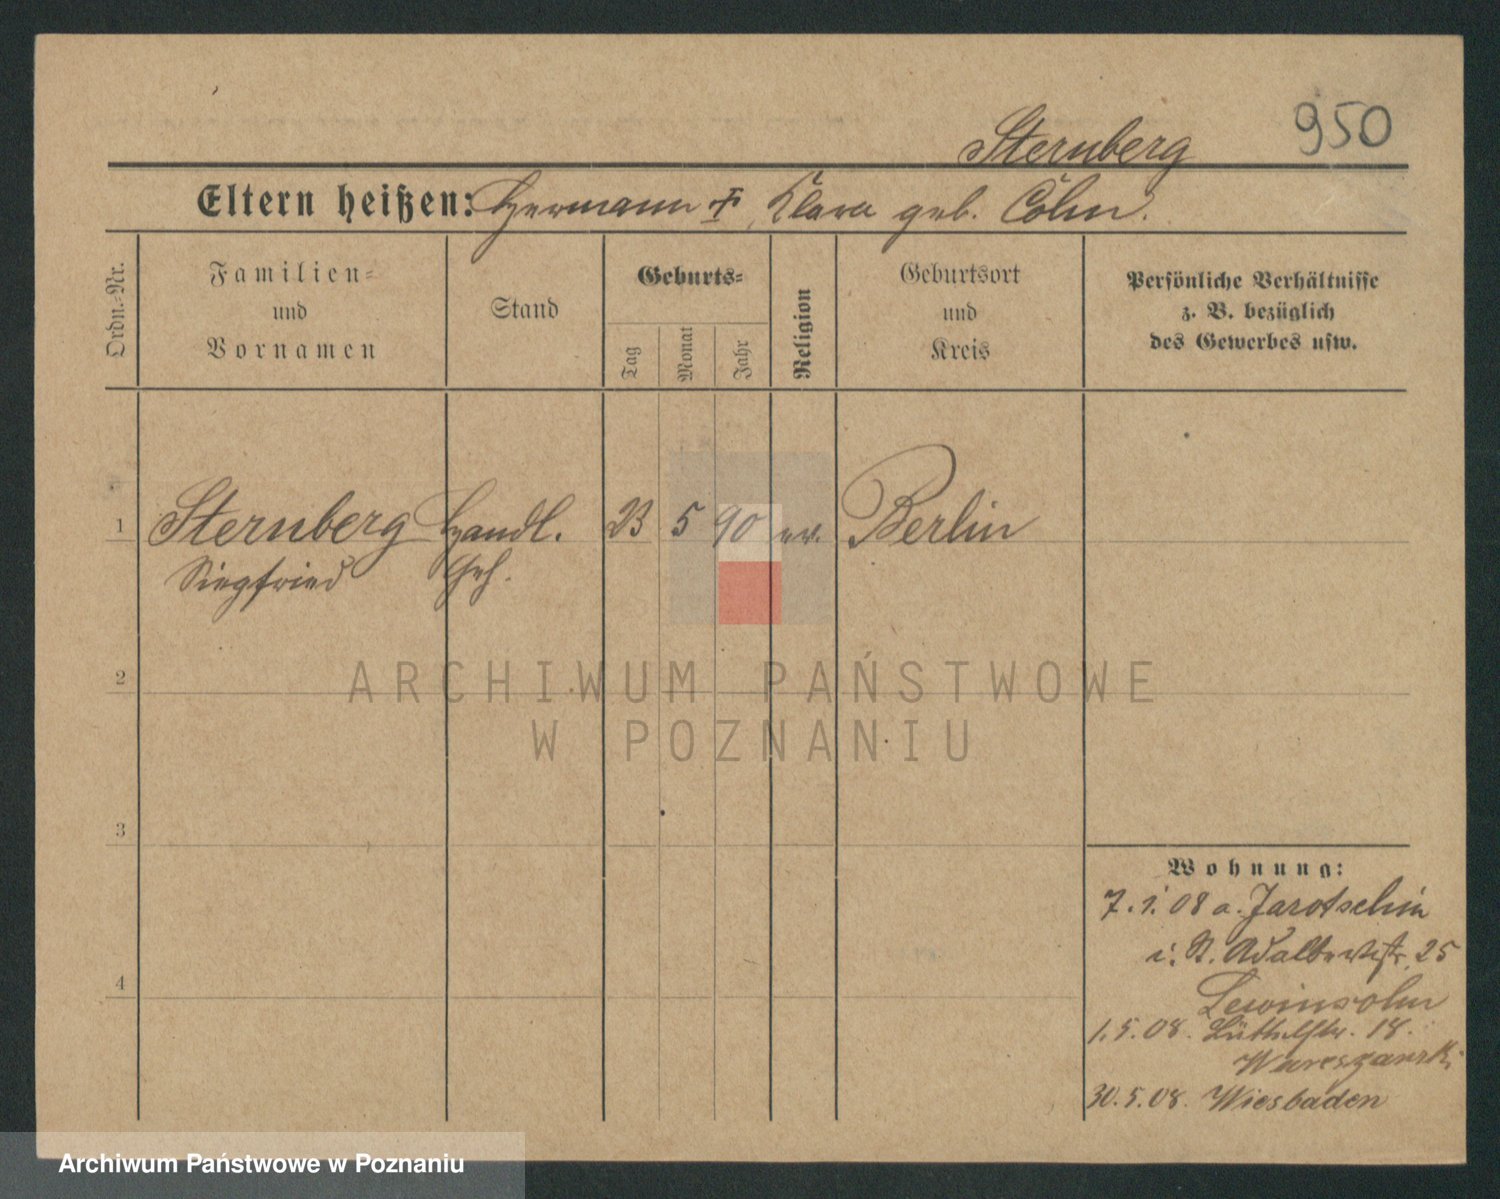 950
Sternberg
Eltern heißen: Hermann † Klara geb. Cohn.
Ordn.-Nr.
Familien-
und
Vornamen
Stand
Geburts-
Tag
Monat
Jahr
Religion
Geburtsort
und
Kreis
Persönliche Verhältnisse
z. B. bezüglich
des Gewerbes usw.
1 Sternberg Handl. 23 5 90 Berlin
Siegfried Geh.
2
3
4
Wohnung:
7. 1. 08 a. Jarotschin
i. St. Adalbertstr. 25
Lewinsohn
1. 5. 08. 18.
30. 5. 08. Wiesbaden
ARCHIWUM PAŃSTWOWE
W POZNANIU
Archiwum Państwowe w Poznaniu